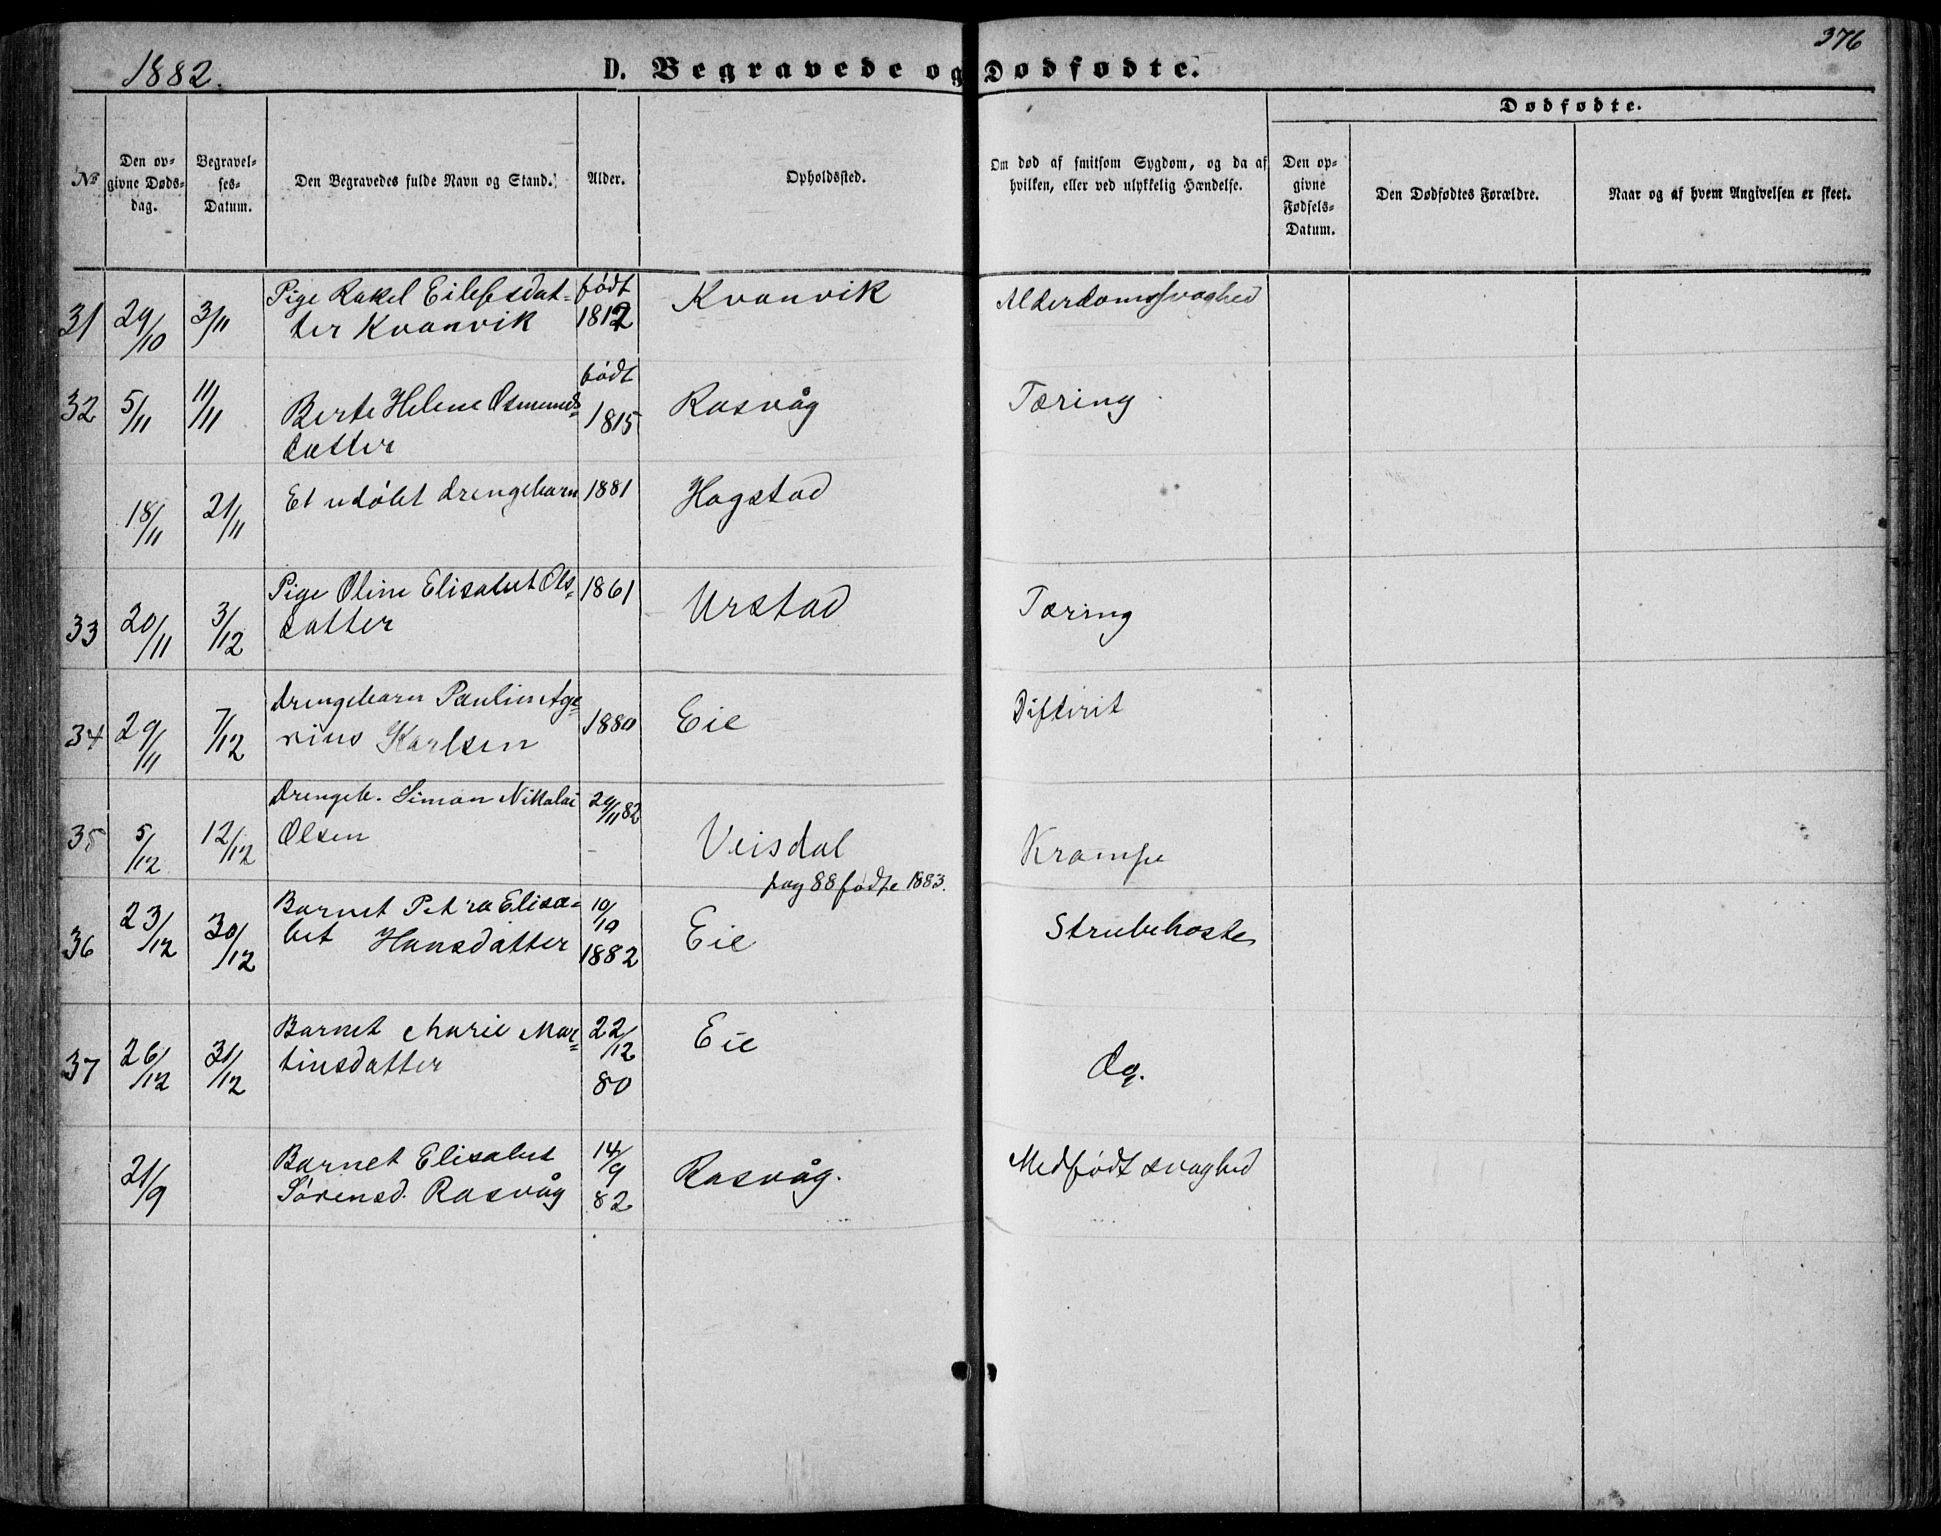 376
1882.
D. Begravede og Dødfødte.
Dødfødte.
No
Den opgivne Dødsdag.
Begravelses-Datum.
Den Begravedes fulde Navn og Stand.
Alder.
Opholdssted.
Om død af smitsom Sygdom, og da af hvilken, eller ved ulykkelig Hændelse.
Den opgivne Fødsels-Datum.
Den Dødfødtes Forældre.
Naar og af hvem Angivelsen er skeet.
31 29/10 3/11 Pige Rakel Eilefsdat- født Kvanvik Alderdomssvaghed
ter Kvanvik 1812
født
32 5/11 11/11 Berte Helene Osmunds- 1815 Rasvåg Tæring
datter
18/11 21/11 Et udøbt drengebarn 1881 Hagstad
Pige Oline Elisabet Ols- 1861 Urstad Tæring
33 20/11 3/12 datter
drengebarn Paulin Age- Difterit
34 29/11 7/12 rius Karlsen 1880 Eie
drengeb. Simon Nikolai 29/11 82
35 5/12 12/12 Olsen Veisdal Krampe
pag 88 fødte 1883.
Barnet Petra Elisa- 10/10
36 23/12 30/12 bet Hansdatter 1882 Eie Strubehoste
Barnet Marie Mar- 22/12 Eie
37 26/12 31/12 tinsdatter 80 do.
Barnet Elisabet 14/9 Medfødt svaghed
21/9 Sørensd. Rasvåg 82 Rasvåg.